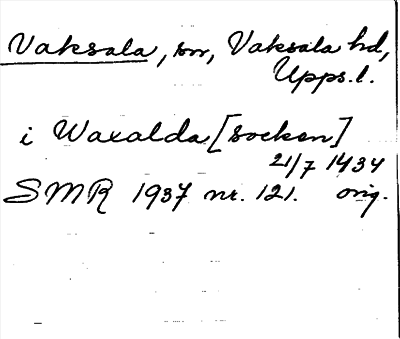 Vaksala, sn, Vaksala hd,
Upps. l.
i Waxalda [socken]
21/7 1434
SMR 1937 nr. 121. orig.